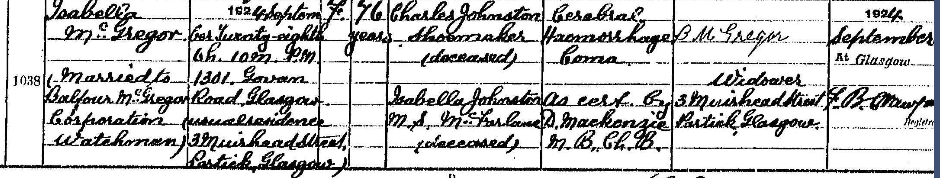 1038
Isabella
McGregor
(Married to
Balfour McGregor
Corporation
Watchman)
1924 Septem
ber Twenty-eighth
6h. 10m. P.M.
1301 Govan
Road Glasgow
(usual residence
3 Muirhead Street,
Partick, Glasgow)
F.
76
years
Charles Johnston
Shoemaker
(deceased)
Isabella Johnston
M.S. McFarlane
(deceased)
Cerebral
Haemorrhage
Coma
As cert. by
D. Mackenzie
M.B., Ch.B.
B McGregor
Widower
3 Muirhead Street
Partick, Glasgow.
1924
September
At Glasgow
F. B.